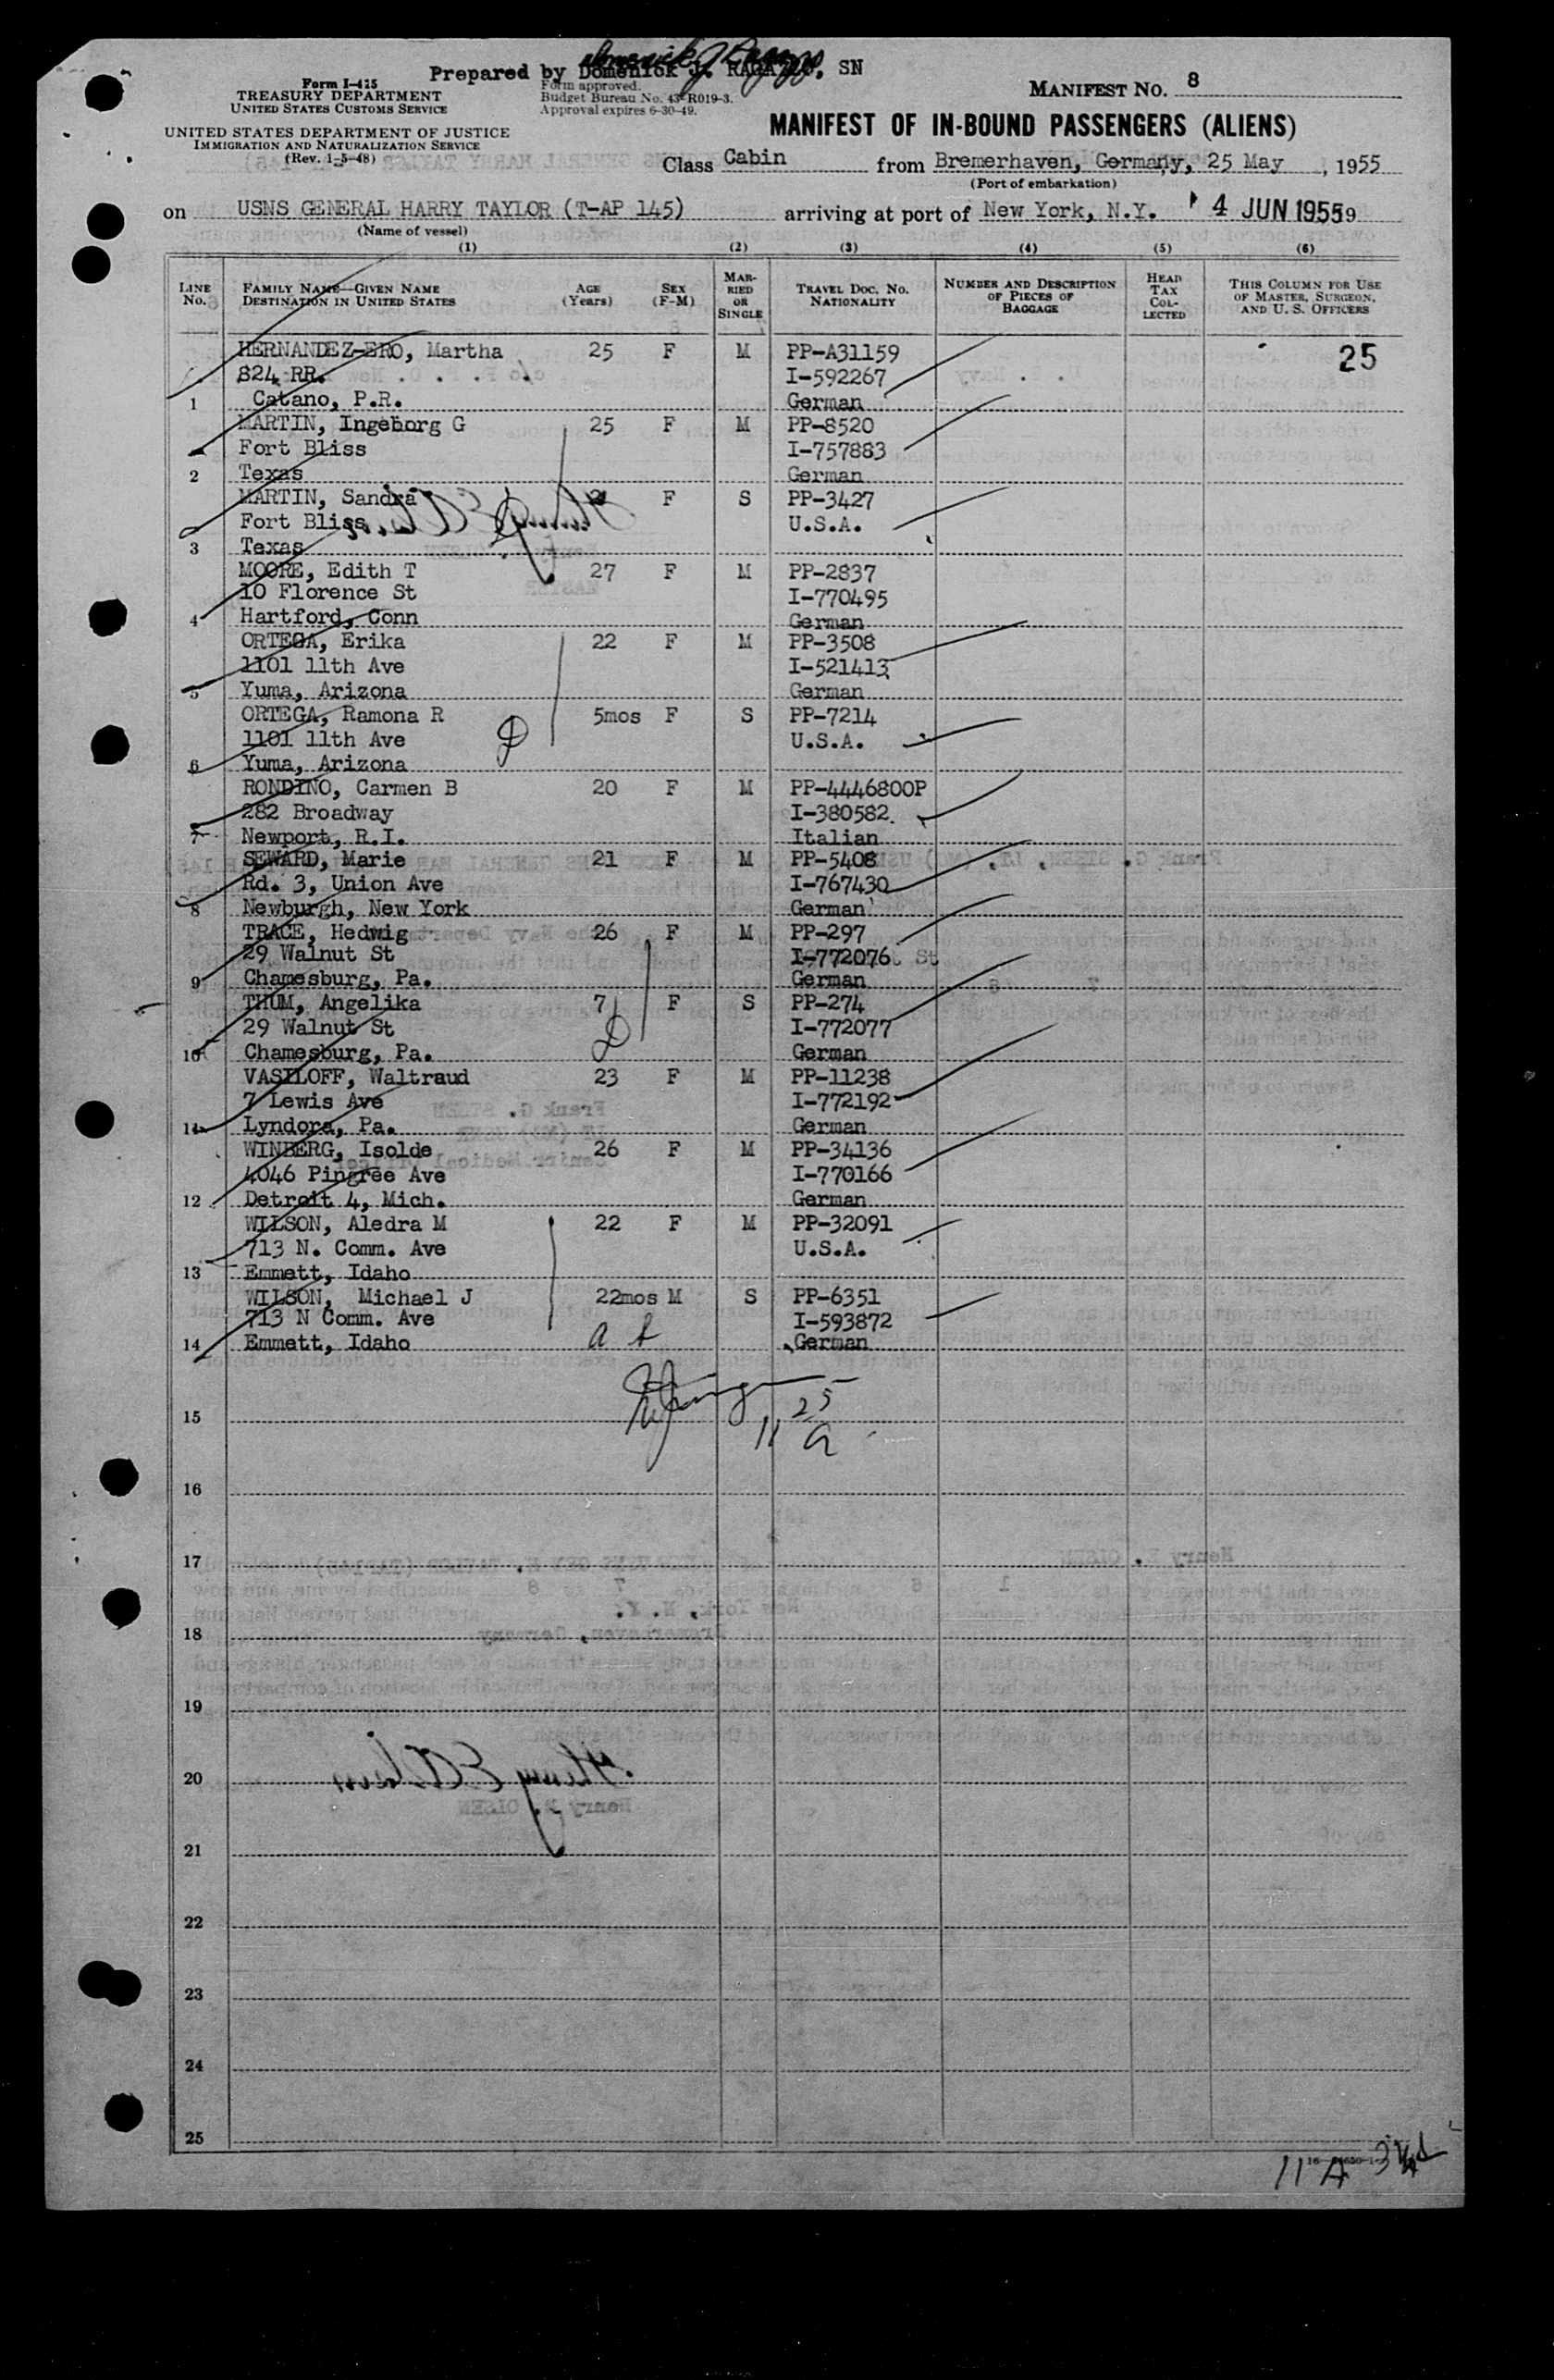 Prepared by Domenick J. RAGAZZO, SN
Form I-415
TREASURY DEPARTMENT
UNITED STATES CUSTOMS SERVICE
Form approved.
Budget Bureau No. 43-R019-3.
Approval expires 6-30-49.
MANIFEST NO. 8
UNITED STATES DEPARTMENT OF JUSTICE
IMMIGRATION AND NATURALIZATION SERVICE
(Rev. 1-5-48)
MANIFEST OF IN-BOUND PASSENGERS (ALIENS)
Class Cabin from Bremerhaven, Germany, 25 May, 1955
(Port of embarkation)
on USNS GENERAL HARRY TAYLOR (T-AP 145) arriving at port of New York, N.Y. 4 JUN 1955 19
(Name of vessel)
(1) (2) (3) (4) (5) (6)
LINE No. FAMILY NAME—GIVEN NAME DESTINATION IN UNITED STATES AGE (Years) SEX (F-M) MARRIED OR SINGLE TRAVEL DOC. NO. NATIONALITY NUMBER AND DESCRIPTION OF PIECES OF BAGGAGE HEAD TAX COLLECTED THIS COLUMN FOR USE OF MASTER, SURGEON, AND U. S. OFFICERS
HERNANDEZ-ERO, Martha 25 F M PP-A31159 25
824 RR. I-592267
1 Catano, P.R. German
MARTIN, Ingeborg G 25 F M PP-8520
Fort Bliss I-757883
2 Texas German
MARTIN, Sandra F S PP-3427
Fort Bliss U.S.A.
3 Texas
MOORE, Edith T 27 F M PP-2837
10 Florence St I-770495
4 Hartford, Conn German
ORTEGA, Erika 22 F M PP-3508
1101 11th Ave I-521413
5 Yuma, Arizona German
ORTEGA, Ramona R 5mos F S PP-7214
1101 11th Ave U.S.A.
6 Yuma, Arizona
RONDINO, Carmen B 20 F M PP-4446800P
282 Broadway I-380582
7 Newport, R.I. Italian
SEWARD, Marie 21 F M PP-5408
Rd. 3, Union Ave I-767430
8 Newburgh, New York German
TRACE, Hedwig 26 F M PP-297
29 Walnut St I-772076
9 Chamesburg, Pa. German
THUM, Angelika 7 F S PP-274
29 Walnut St I-772077
10 Chamesburg, Pa. German
VASILOFF, Waltraud 23 F M PP-11238
7 Lewis Ave I-772192
11 Lyndora, Pa. German
WINBERG, Isolde 26 F M PP-34136
4046 Pingree Ave I-770166
12 Detroit 4, Mich. German
WILSON, Aledra M 22 F M PP-32091
713 N. Comm. Ave U.S.A.
13 Emmett, Idaho
WILSON, Michael J 22mos M S PP-6351
713 N Comm. Ave I-593872
14 Emmett, Idaho German
15
16
17
18
19
20
21
22
23
24
25
11 A